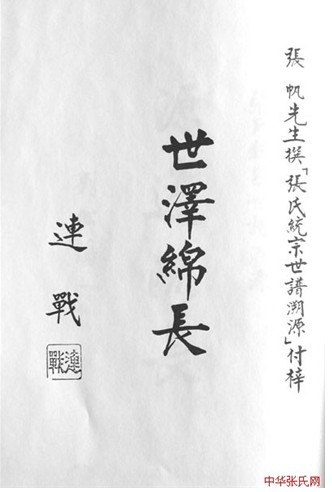 張帆先生撰「張氏統宗世譜溯源」付梓
世澤綿長
連戰
連戰
中华张氏网